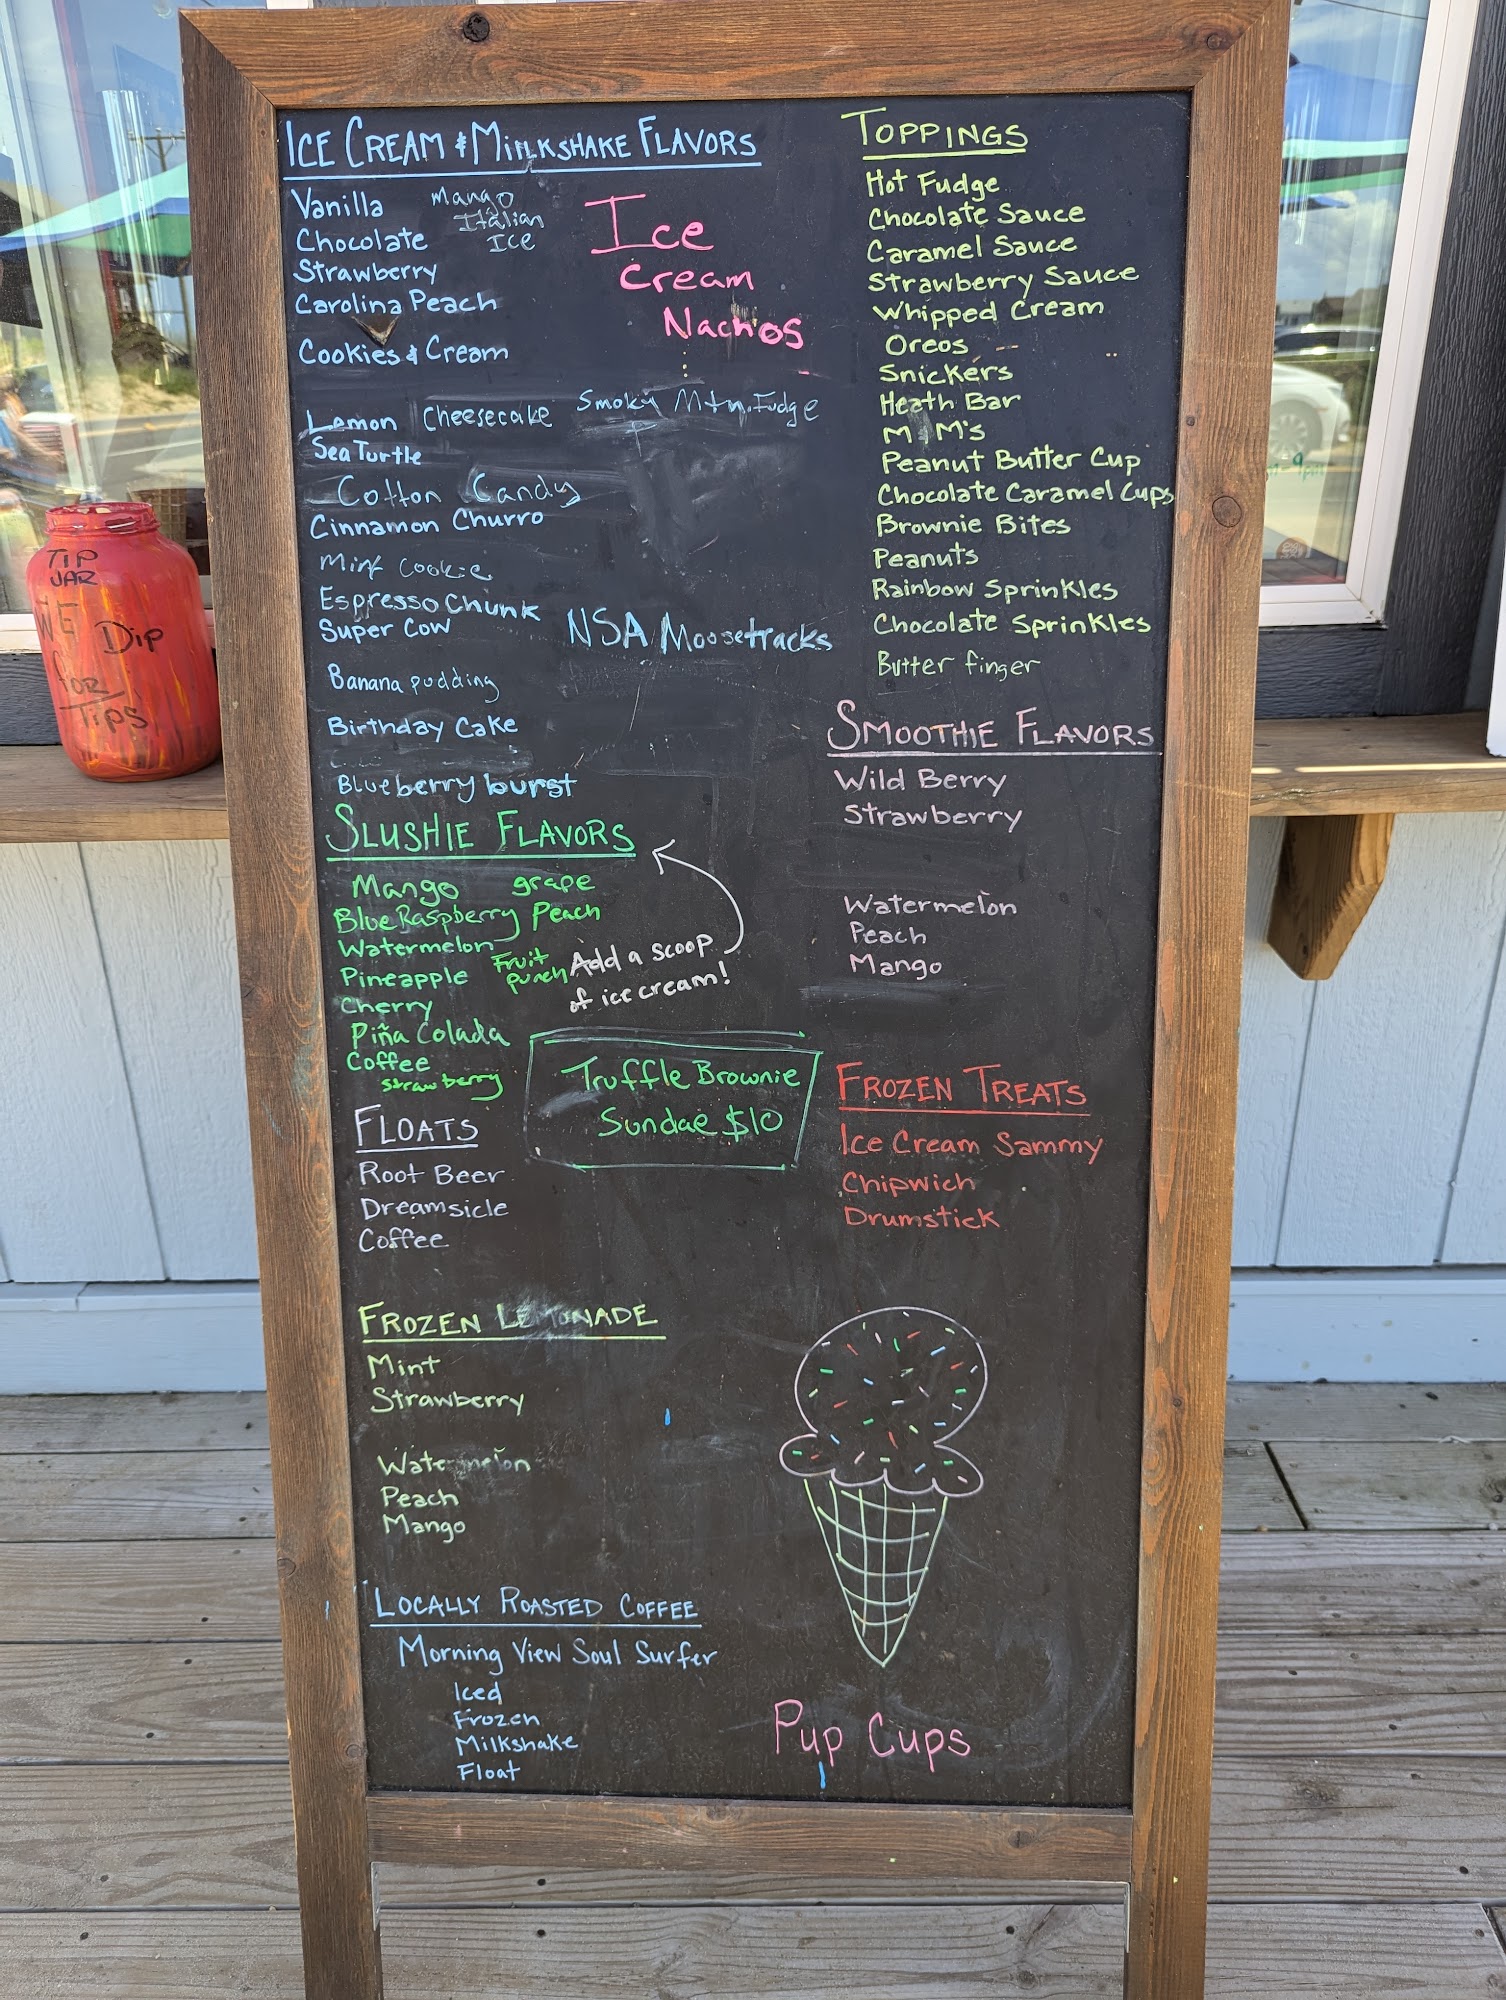 ICE CREAM & MILKSHAKE FLAVORS
Vanilla
Chocolate
Strawberry
Carolina Peach
Cookies & Cream
Mango
Italian
Ice
Ice
Cream
Nachos
Lemon Cheesecake
Smoky Mtn. Fudge
Sea Turtle
Cotton Candy
Cinnamon Churro
Mint Cookie
Espresso Chunk
Super Cow
NSA Moosetracks
Banana pudding
Birthday Cake
Blueberry burst
SLUSHIE FLAVORS
Mango
Blue Raspberry
Watermelon
Pineapple
Cherry
Piña Colada
Coffee
Strawberry
grape
Peach
Fruit
punch
Add a scoop
of ice cream!
Truffle Brownie
Sundae $10
FLOATS
Root Beer
Dreamsicle
Coffee
FROZEN LEMONADE
Mint
Strawberry
Watermelon
Peach
Mango
LOCALLY ROASTED COFFEE
Morning View Soul Surfer
Iced
Frozen
Milkshake
Float
TOPPINGS
Hot Fudge
Chocolate Sauce
Caramel Sauce
Strawberry Sauce
Whipped Cream
Oreos
Snickers
Heath Bar
M&M's
Peanut Butter Cup
Chocolate Caramel Cups
Brownie Bites
Peanuts
Rainbow Sprinkles
Chocolate Sprinkles
Butter finger
SMOOTHIE FLAVORS
Wild Berry
Strawberry
Watermelon
Peach
Mango
FROZEN TREATS
Ice Cream Sammy
Chipwich
Drumstick
Pup Cups
TIP
JAR
WE
DIP
FOR
TIPS